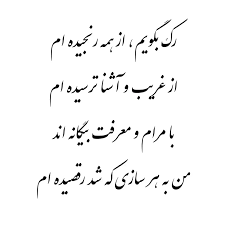 رک بگویم ، از همه رنجیده ام
از غریب و آشنا ترسیده ام
با مرام و معرفت بیگانه اند
من به هر سازی که شد رقصیده ام